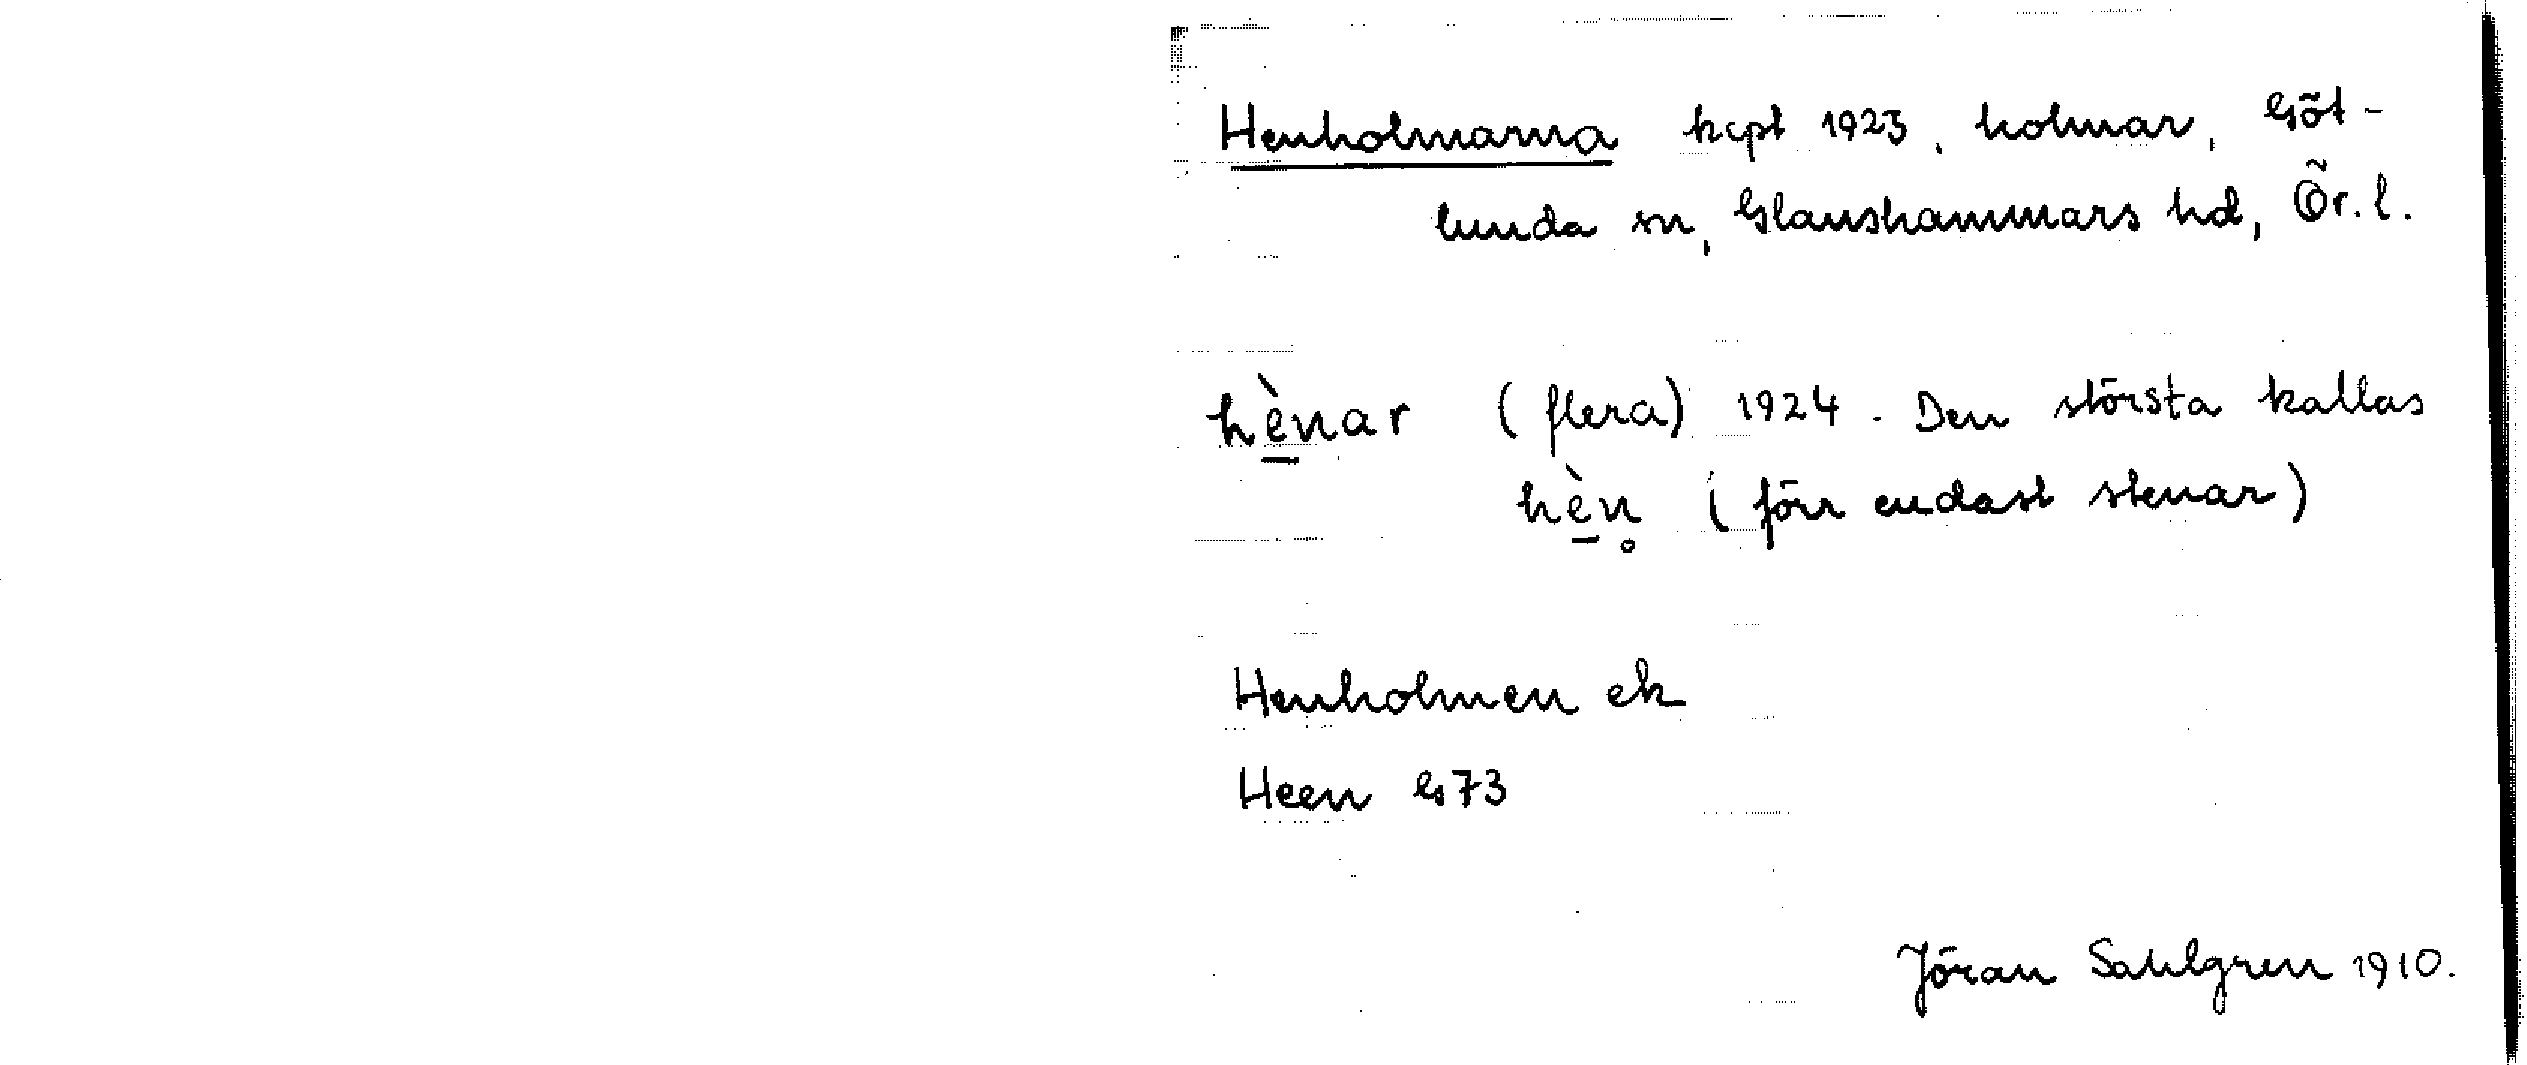 Henholmarna kcpt 1923, holmar, Göt-
lunda sn, Glanshammars hd, Ör. l.
hè̱nar (flera) 1924. Den största kallas
hè̱n̥ (förr endast stenar)
Henholmen ek
Heen G73
Jöran Sahlgren 1910.